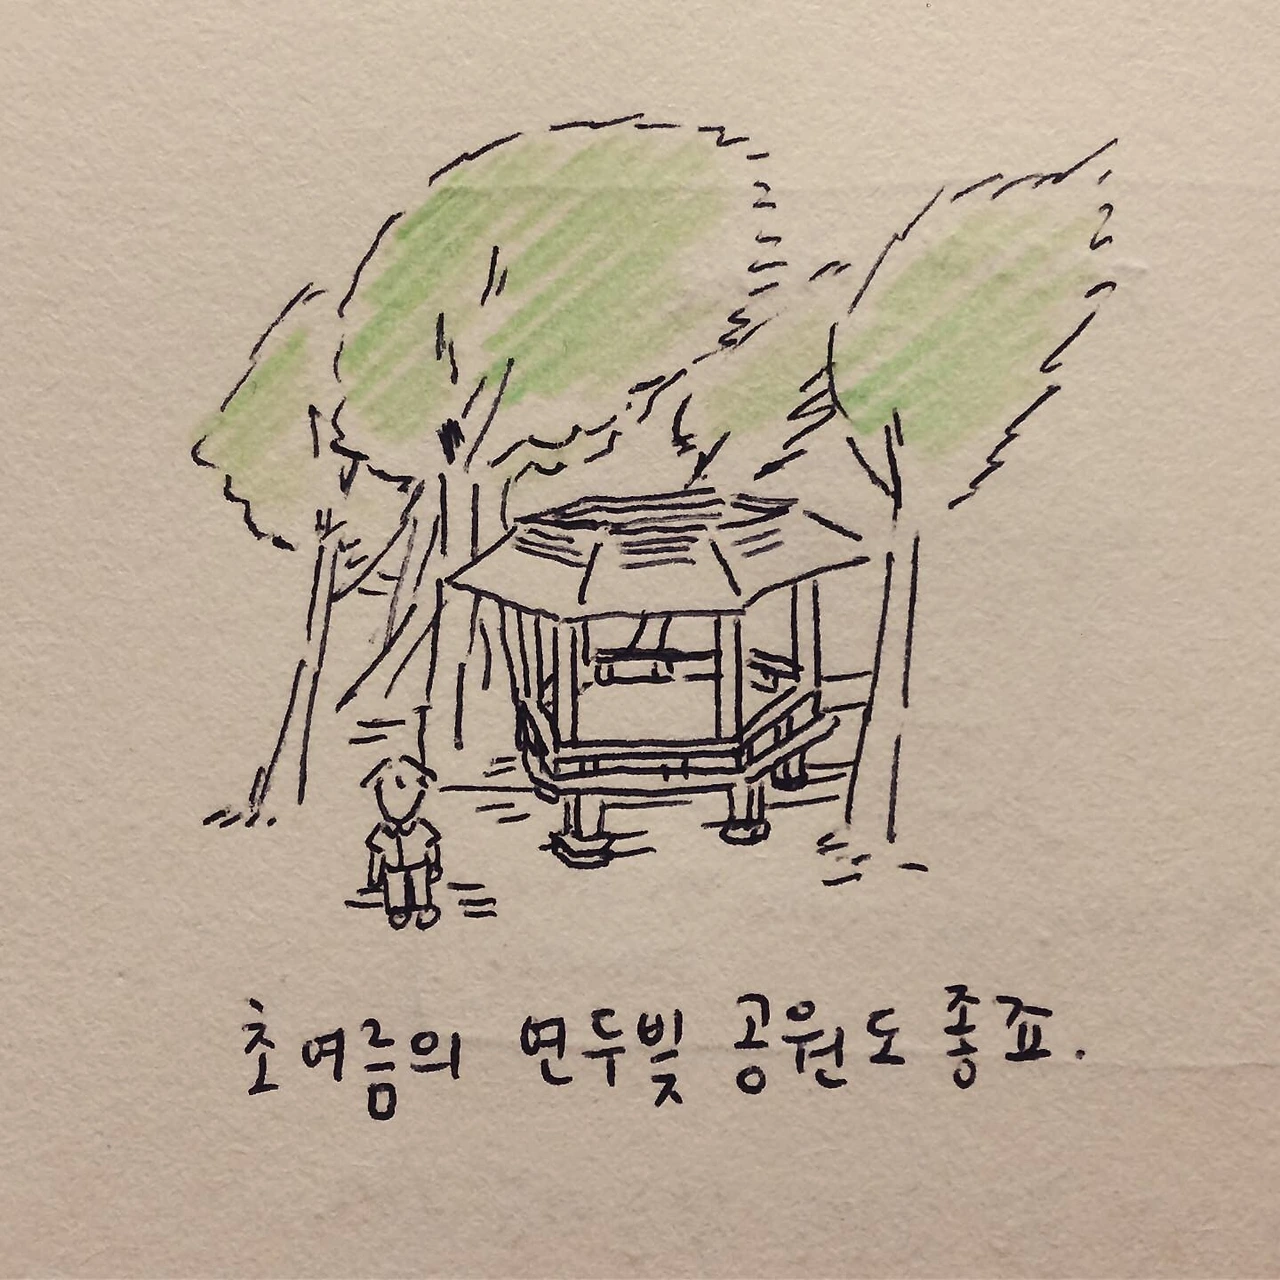 초여름의 연두빛 공원도 좋죠.